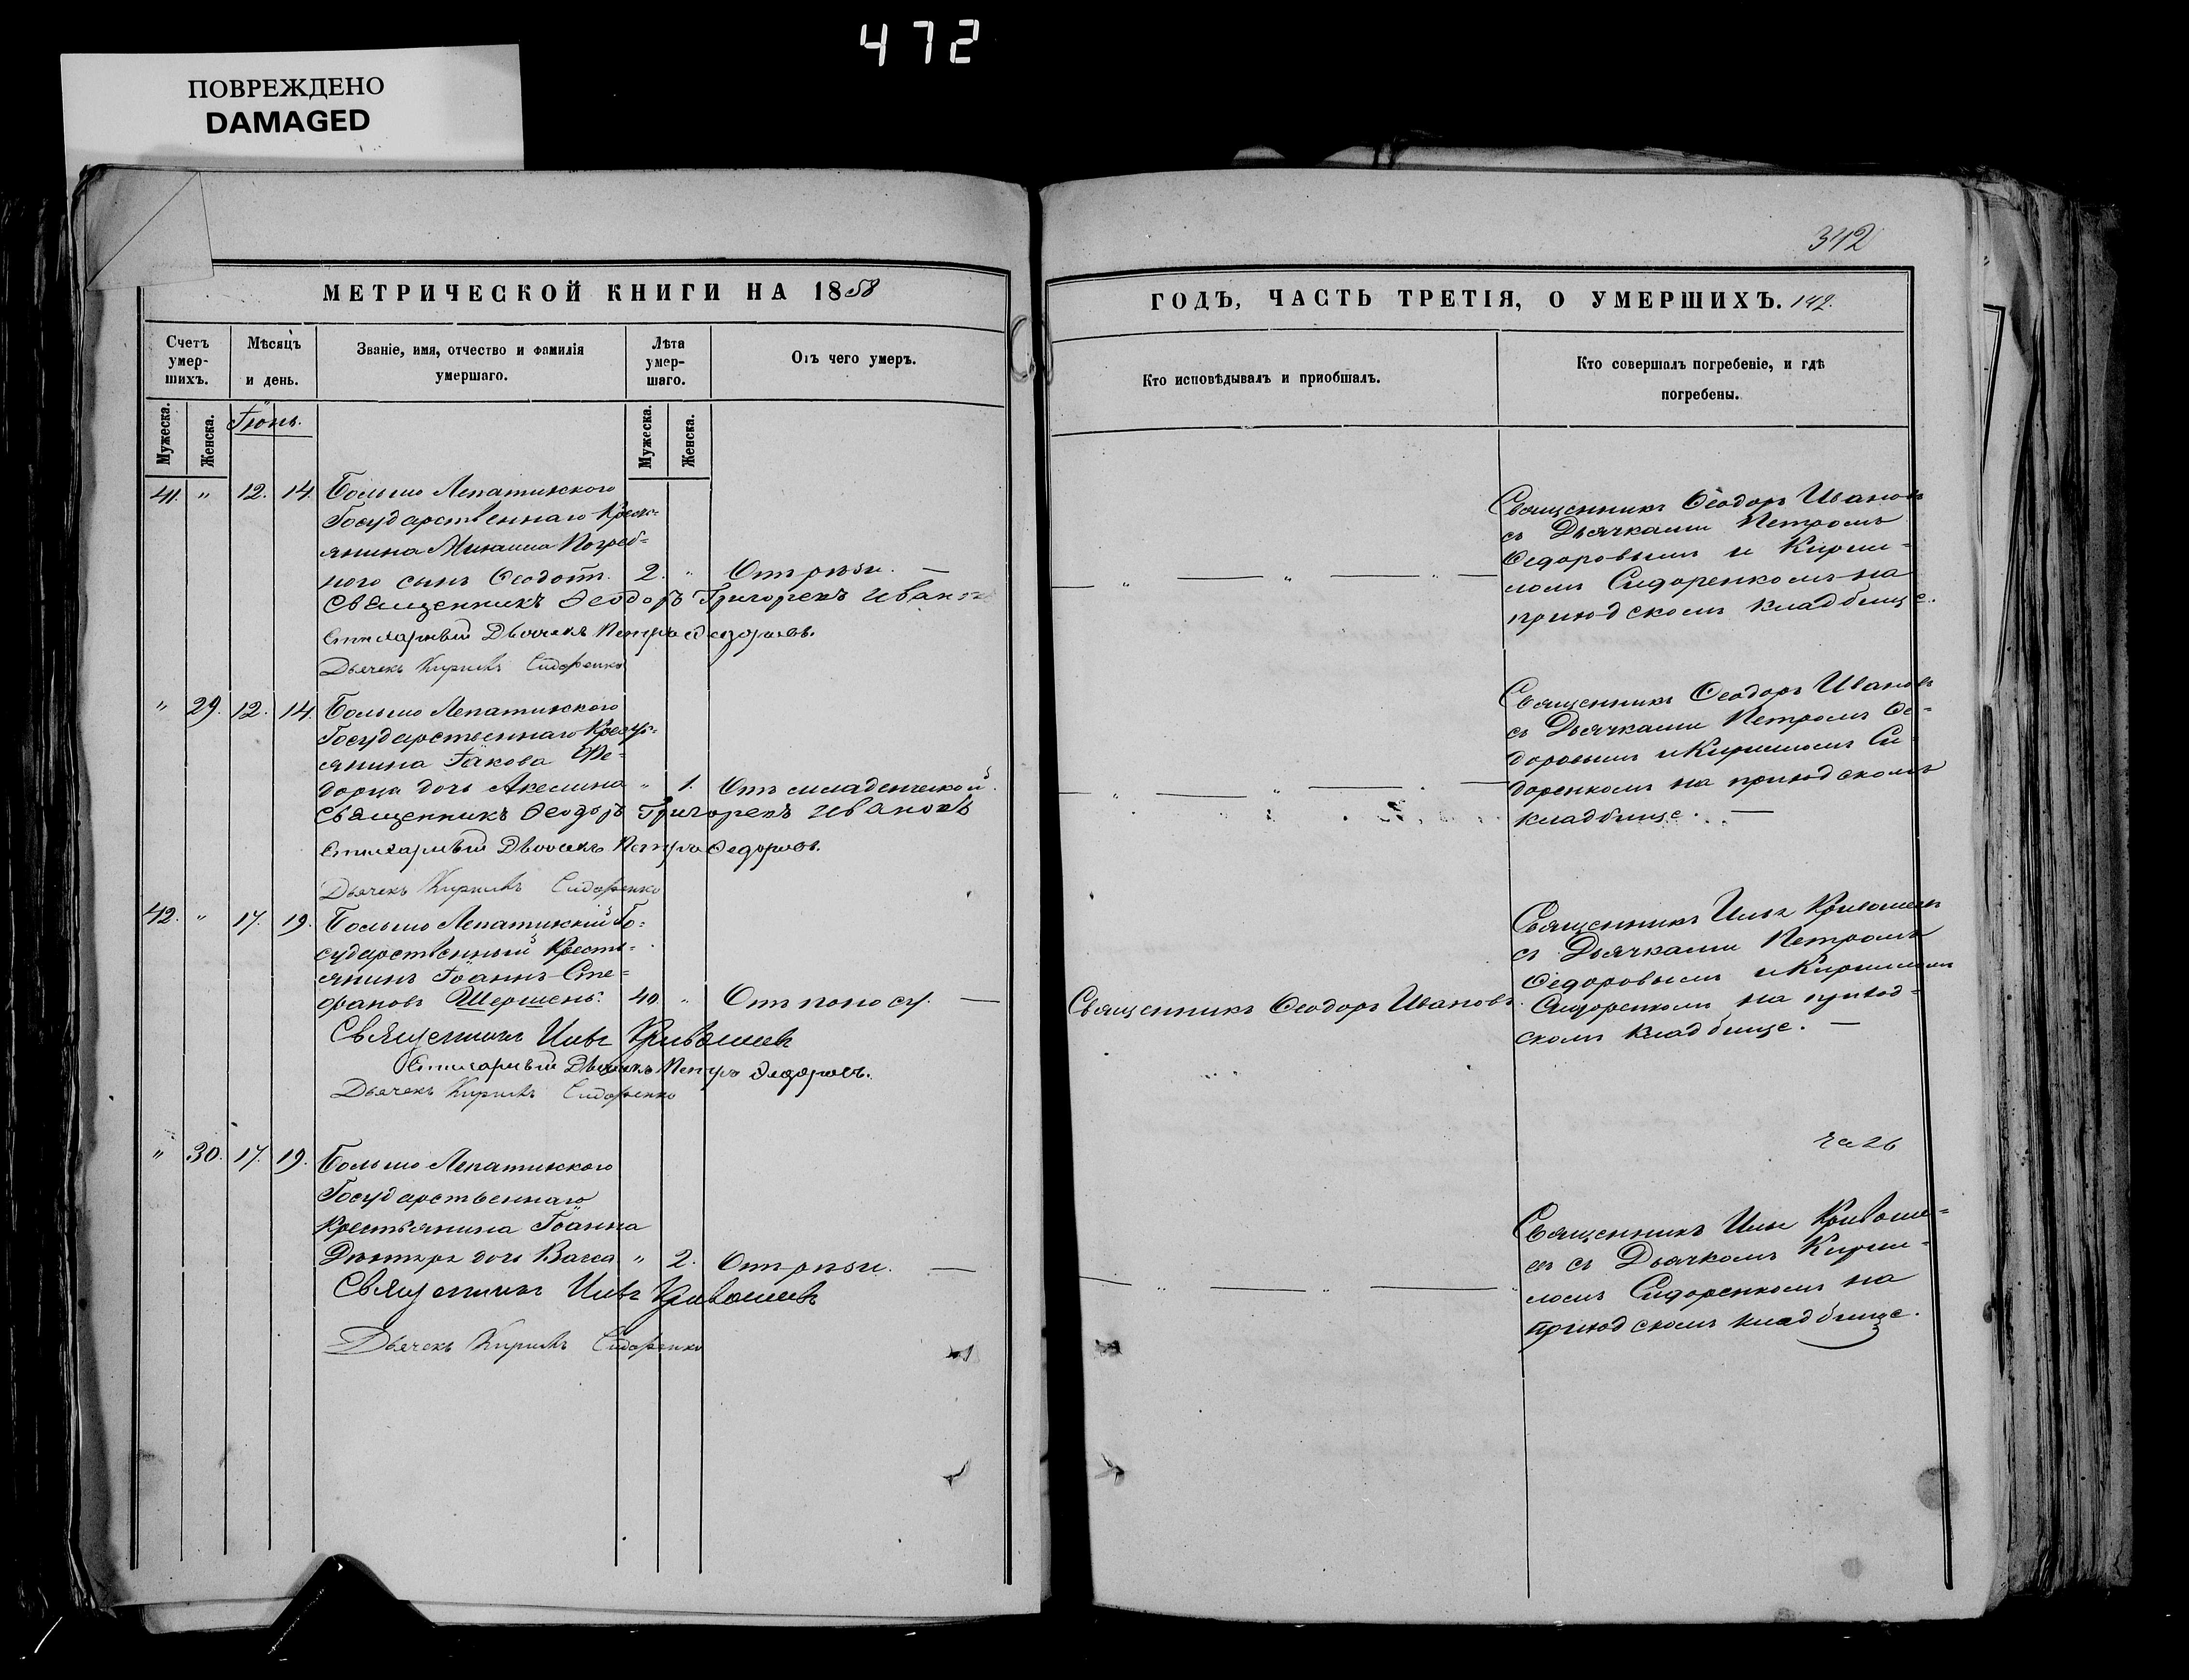 472
ПОВРЕЖДЕНО
DAMAGED
342
МЕТРИЧЕСКОЙ КНИГИ НА 1858
ГОДЪ, ЧАСТЬ ТРЕТІЯ, О УМЕРШИХЪ. 142.
Счетъ умер-шихъ.
Мѣсяцъ и день.
Званіе, имя, отчество и фамилія умершаго.
Лѣта умер-шаго.
Отъ чего умеръ.
Кто исповѣдывалъ и приобщалъ.
Кто совершалъ погребеніе, и гдѣ погребены.
Мужеска.
Женска.
Іюнь.
Мужеска.
Женска.
41. " 12. 14. Больше Лепатихского
Государственнаго Крест=
янина Михаила Погреб=
ного сынъ Ѳеодотъ. 2. " Отъ рѣзи. —
Священникъ Ѳеодоръ Григоревъ Ивановъ
Стихарный Дьячекъ Петръ Федоровъ.
Дьячекъ Кирилъ Сидоренко
Священникъ Ѳеодоръ Ивановъ
съ Дьячками Петромъ
Ѳедоровымъ и Кирил=
ломъ Сидоренкомъ на
приходскомъ кладбище.
" 29. 12. 14. Больше Лепатихского
Государственнаго Крест=
янина Іакова
дочь Акелина " 1. Отъ младенческой.
Священникъ Ѳеодоръ Григоревъ Ивановъ
Стихарный Дьячекъ Петръ Федоровъ.
Дьячекъ Кирилъ Сидоренко
Священникъ Ѳеодоръ Ивановъ
съ Дьячками Петромъ Ѳе=
доровымъ и Кириломъ Си=
доренкомъ на приходскомъ
кладбище. —
42. " 17. 19. Больше Лепатихскій Го=
сударственный Кресть=
янинъ Іоаннъ Сте=
фановъ Шершень. 40. " Отъ поносу. —
Священникъ Илія Кривошеевъ
Стихарный Дьячекъ Петръ Федоровъ.
Дьячекъ Кирилъ Сидоренко
Священникъ Ѳеодоръ Ивановъ.
Священникъ Илія Кривошеевъ
съ Дьячками Петромъ
Ѳедоровымъ и Кириломъ
Сидоренкомъ на приход=
скомъ кладбище. —
" 30. 17. 19. Больше Лепатихского
Государственнаго
Крестьянина Іоанна
дочь Васса " 2. Отъ рѣзи. —
Священникъ Илія Кривошеевъ
Дьячекъ Кирилъ Сидоренко
Священникъ Илія Кривоше=
евъ съ Дьячкомъ Кирил=
ломъ Сидоренкомъ на
приходскомъ кладбище.